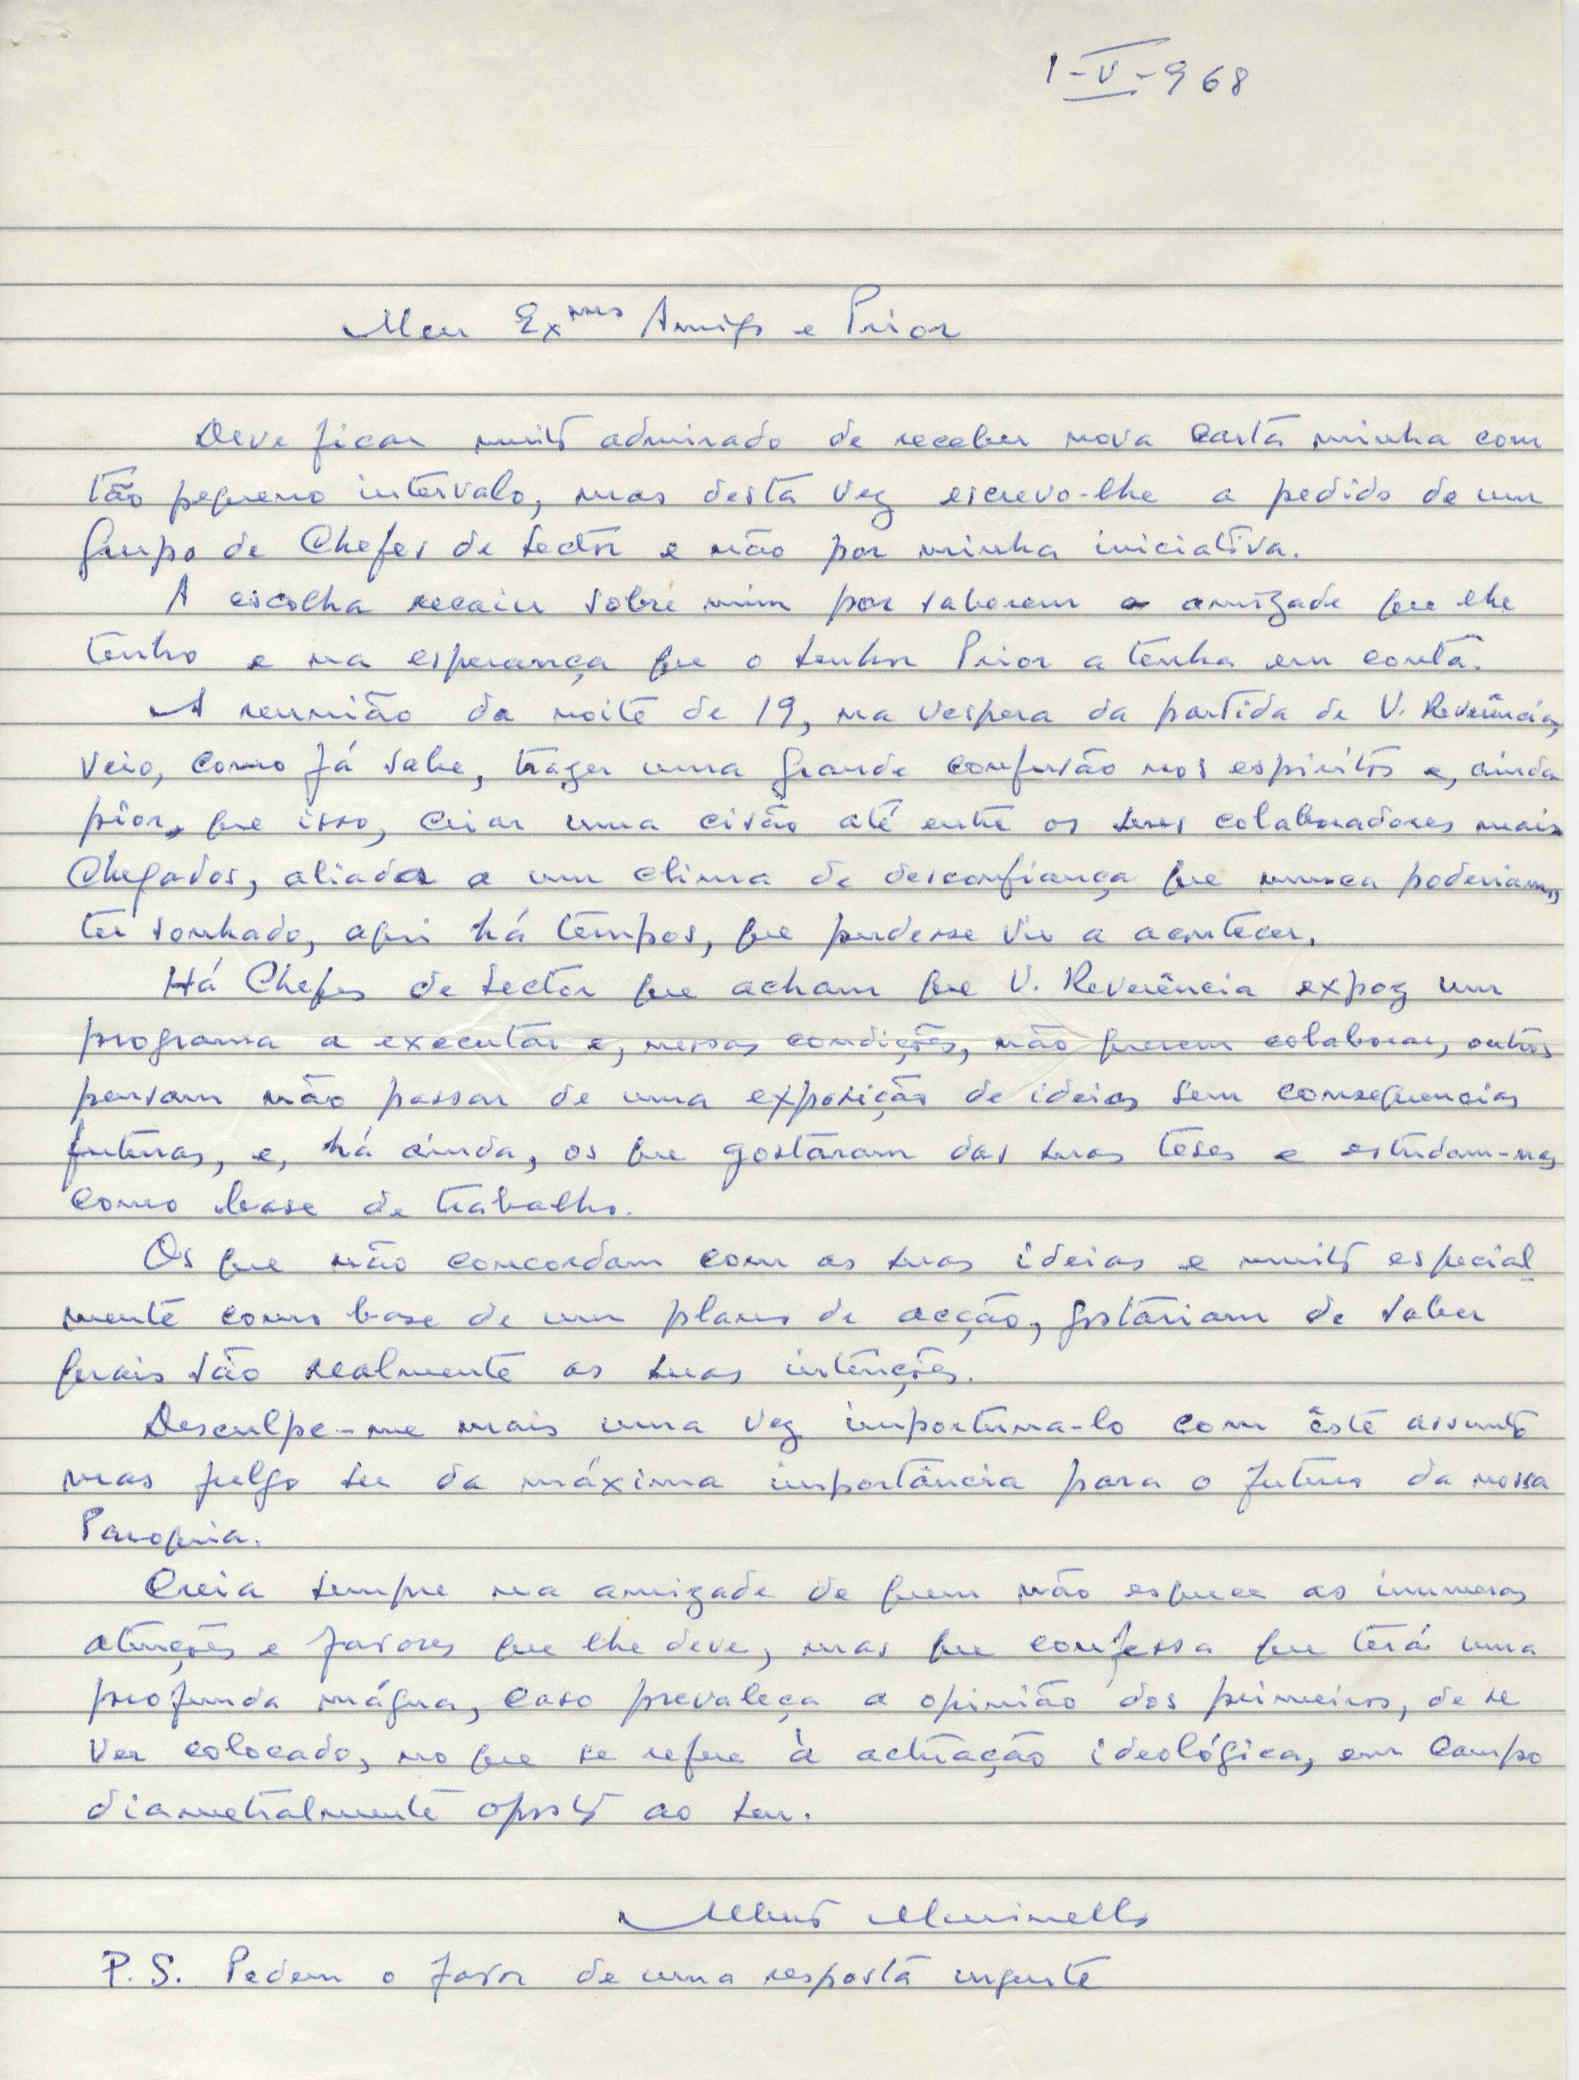 1-V-968
Meu Exmo Amigo e Prior
Deve ficar muito admirado de receber nova carta minha com
tão pequeno intervalo, mas desta vez escrevo-lhe a pedido de um
grupo de Chefes de Sector e não por minha iniciativa.
A escolha recaiu sobre mim por saberem a amizade que lhe
tenho e na esperança que o senhor Prior a tenha em conta.
A reunião da noite de 19, na vespera da partida de V. Reverência,
veio, como já sabe, trazer uma grande confusão nos espiritos e, ainda
pior, que isso, criar uma cisão até entre os seus colaboradores mais
chegados, aliada a um clima de desconfiança que nunca poderiamos
ter sonhado, aqui há tempos, que pudesse vir a acontecer.
Há Chefes de Sector que acham que V. Reverência expoz um
programa a executar e, nessas condições, não querem colaborar, outros
pensam não passar de uma exposição de ideias sem consequencias
futuras, e, há ainda, os que gostaram das suas teses e estudam-nas
como base de trabalho.
Os que não concordam com as suas ideias e muito especial
mente como base de um plano de acção, gostariam de saber
quais são realmente as suas intenções.
Desculpe-me mais uma vez importuna-lo com êste assunto
mas julgo ser da máxima importância para o futuro da nossa
Paroquia.
Creia sempre na amizade de quem não esquece as inumeras
atenções e favores que lhe deve, mas que confessa que terá uma
profunda mágua, caso prevaleça a opinião dos primeiros, de se
ver colocado, no que se refere à actuação ideológica, em campo
diametralmente oposto ao seu.
P.S. Pedem o favor de uma resposta urgente